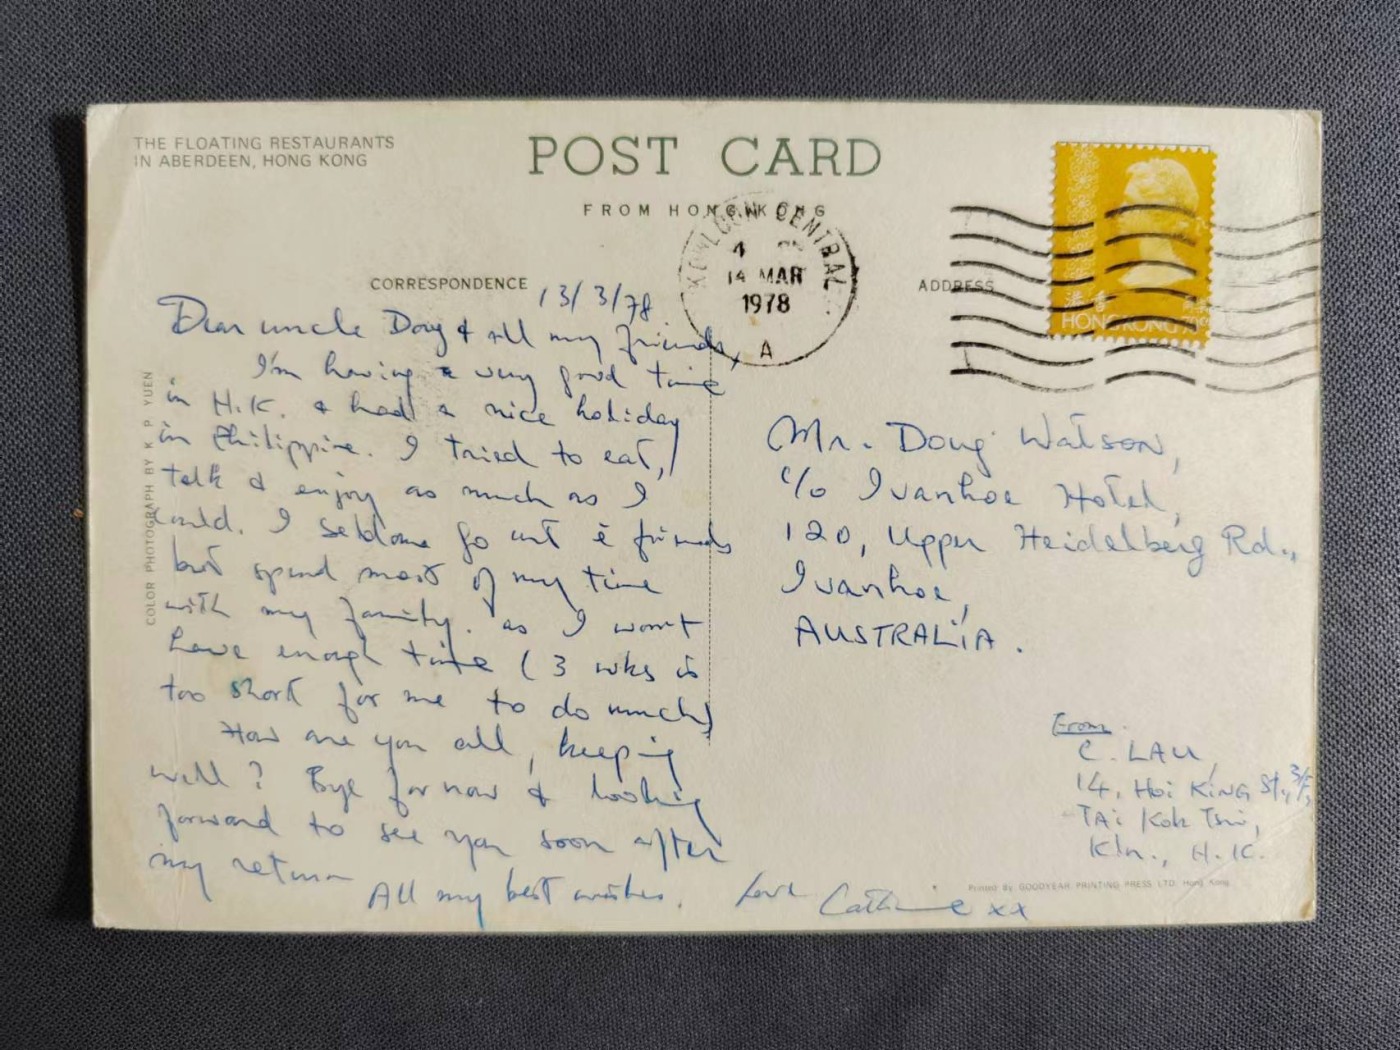 THE FLOATING RESTAURANTS
IN ABERDEEN, HONG KONG
POST CARD
FROM HONG KONG
CORRESPONDENCE
ADDRESS
COLOR PHOTOGRAPH BY K P YUEN
KOWLOON CENTRAL
4
14 MAR
1978
A
香港
HONG KONG
13/3/78
Dear uncle Doug & all my friends,
I'm having a very good time
in H.K. & had a nice holiday
in Philippine. I tried to eat,
talk & enjoy as much as I
could. I seldome go out c̄ friends
but spend most of my time
with my family. as I won't
have enough time (3 wks is
too short for me to do much)
How are you all, keeping
well? Bye for now & looking
forward to see you soon after
my return
All my best wishes. Love Catherine xx
Mr. Doug Watson,
c/o Ivanhoe Hotel,
120, Upper Heidelberg Rd.,
Ivanhoe,
AUSTRALIA.
From
C. LAU,
14, Hoi KING St., 3/F,
TAi Kok Tsui,
Kln., H.K.
Printed By GOODYEAR PRINTING PRESS LTD. Hong Kong